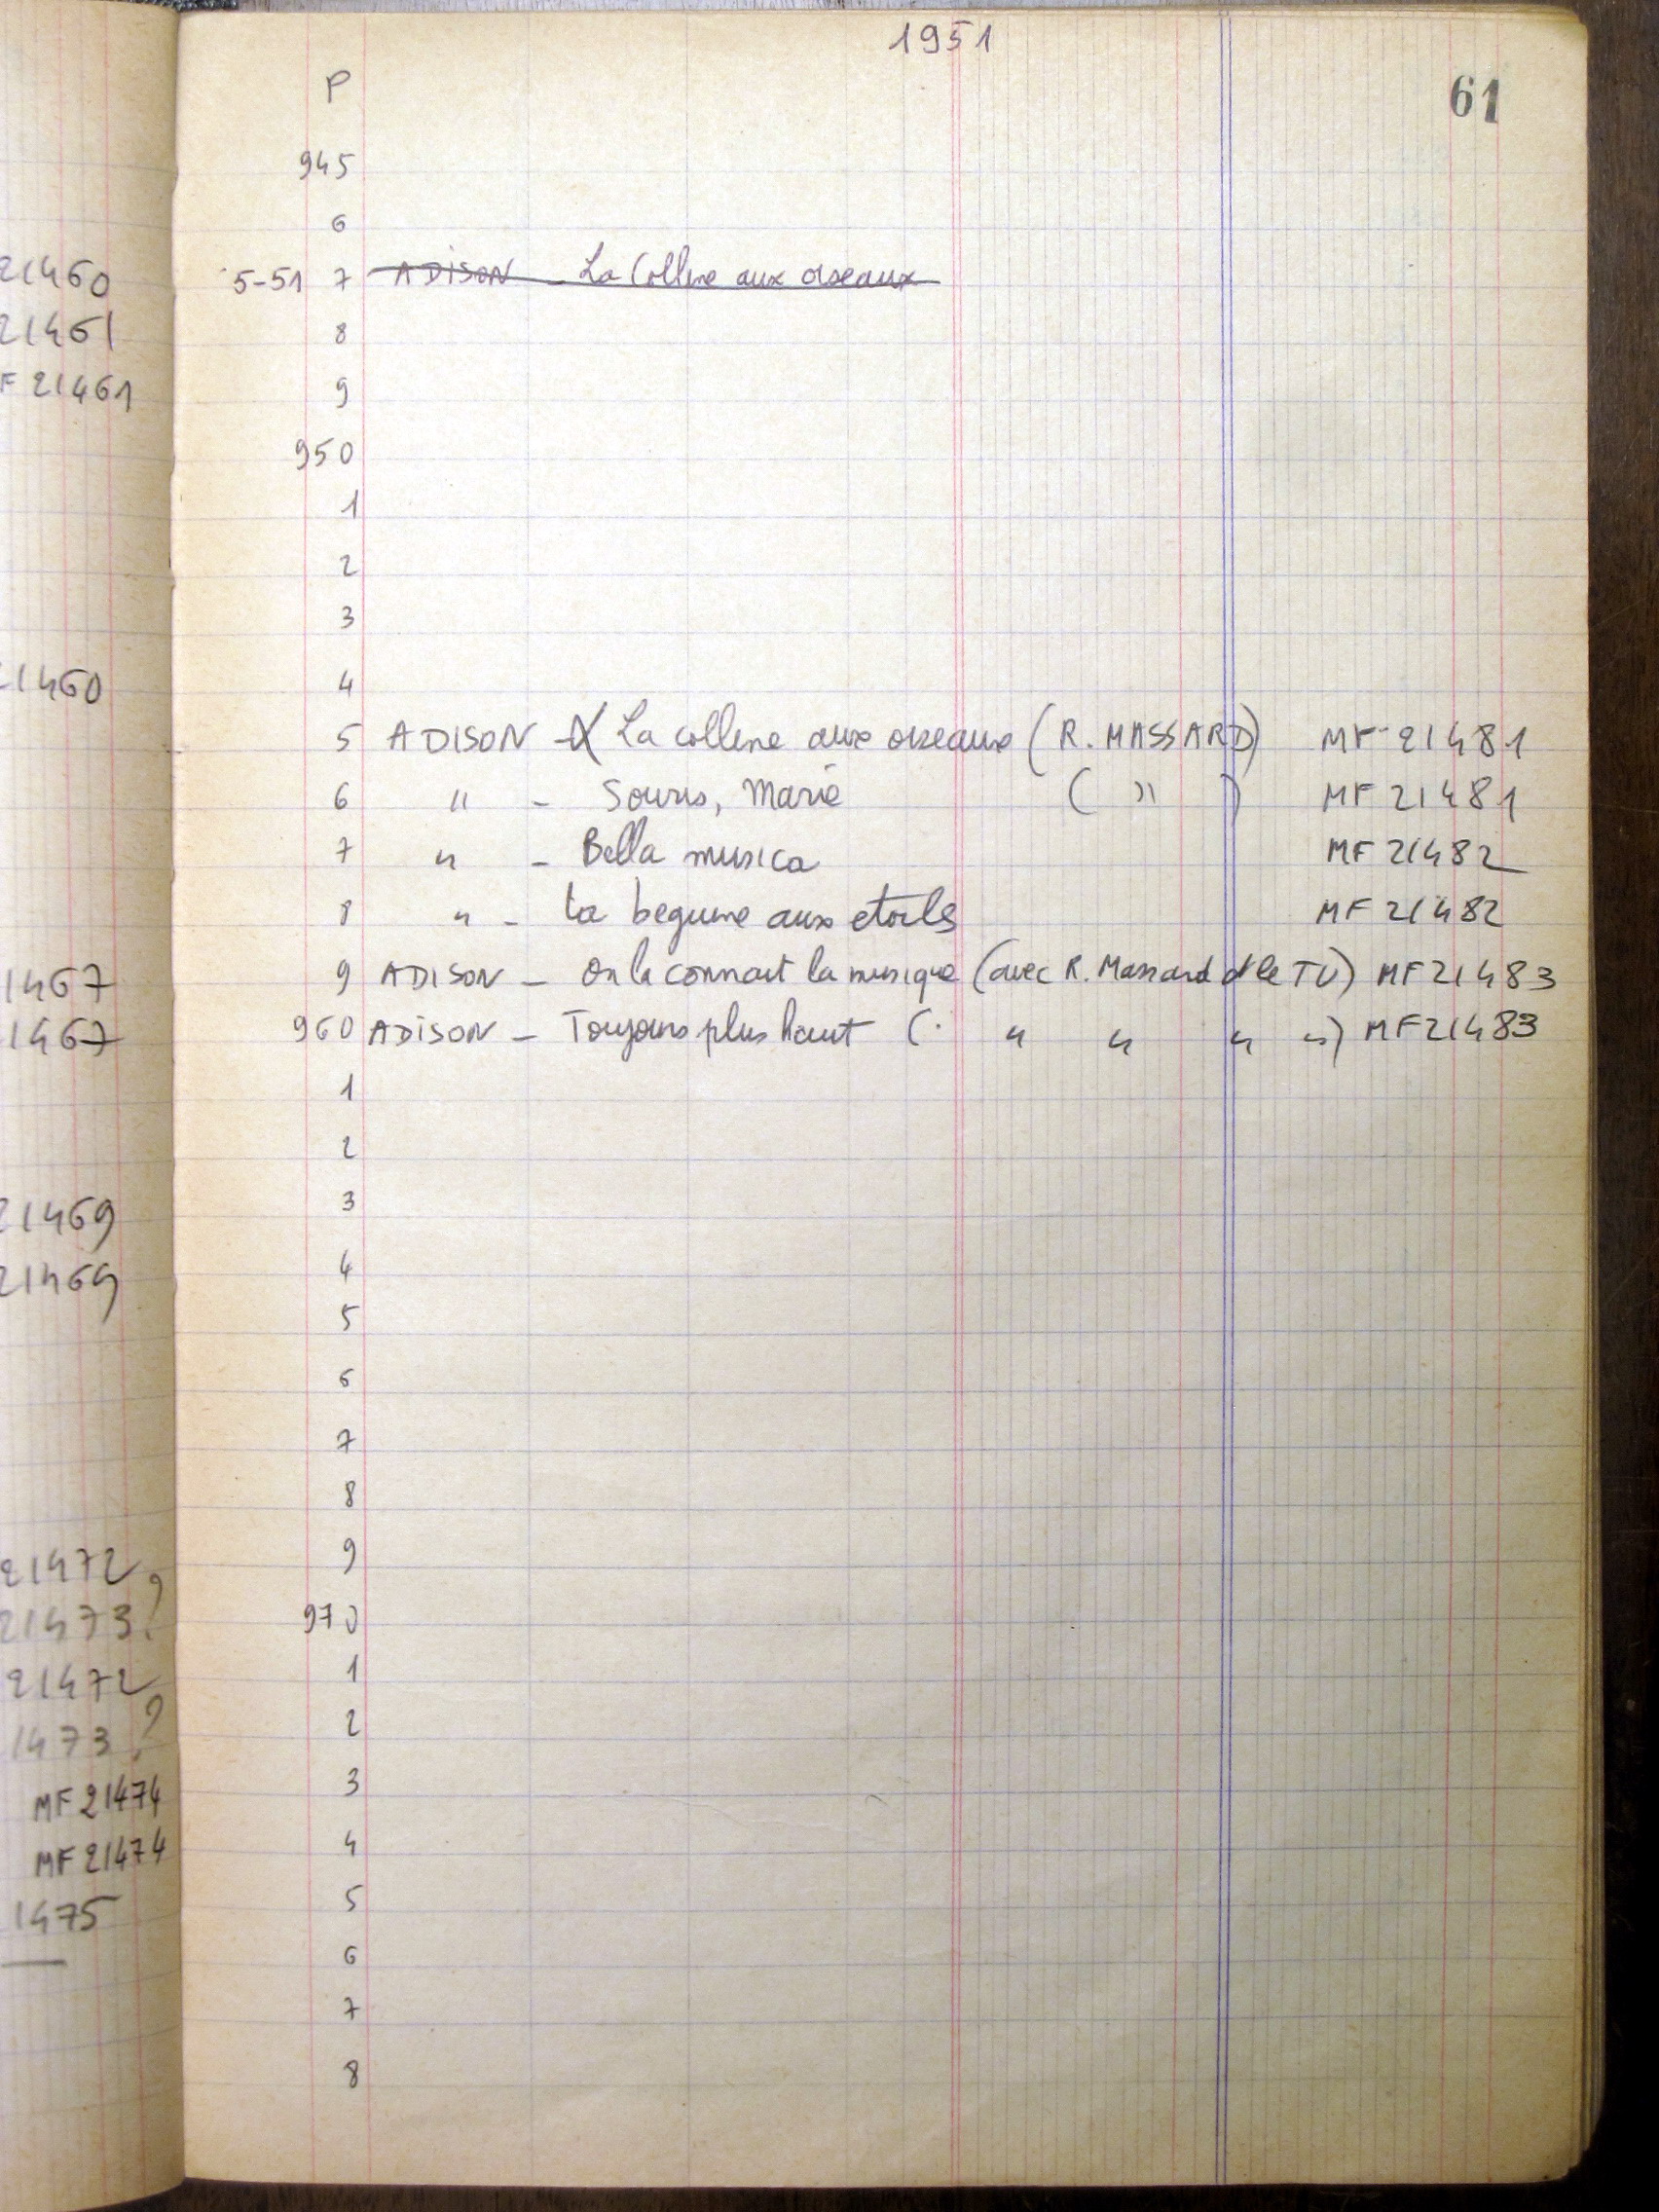 1951
61
P
945
6
5-51 7 ADISON - La Colline aux oiseaux
8
9
950
1
2
3
4
5 ADISON - La colline aux oiseaux (R. MASSARD) MF 21481
6 " - Souris, Marie ( " ) MF 21481
7 " - Bella musica MF 21482
8 " - La beguine aux etoiles MF 21482
9 ADISON - On la connait la musique (avec R. Massard de le TV) MF 21483
960 ADISON - Toujours plus haut ( " " " ") MF 21483
1
2
3
4
5
6
7
8
9
970
1
2
3
4
5
6
7
8
21460
21461
F 21461
1460
1467
1467
21469
21469
21472
21473?
21472
1473?
MF 21474
MF 21474
1475